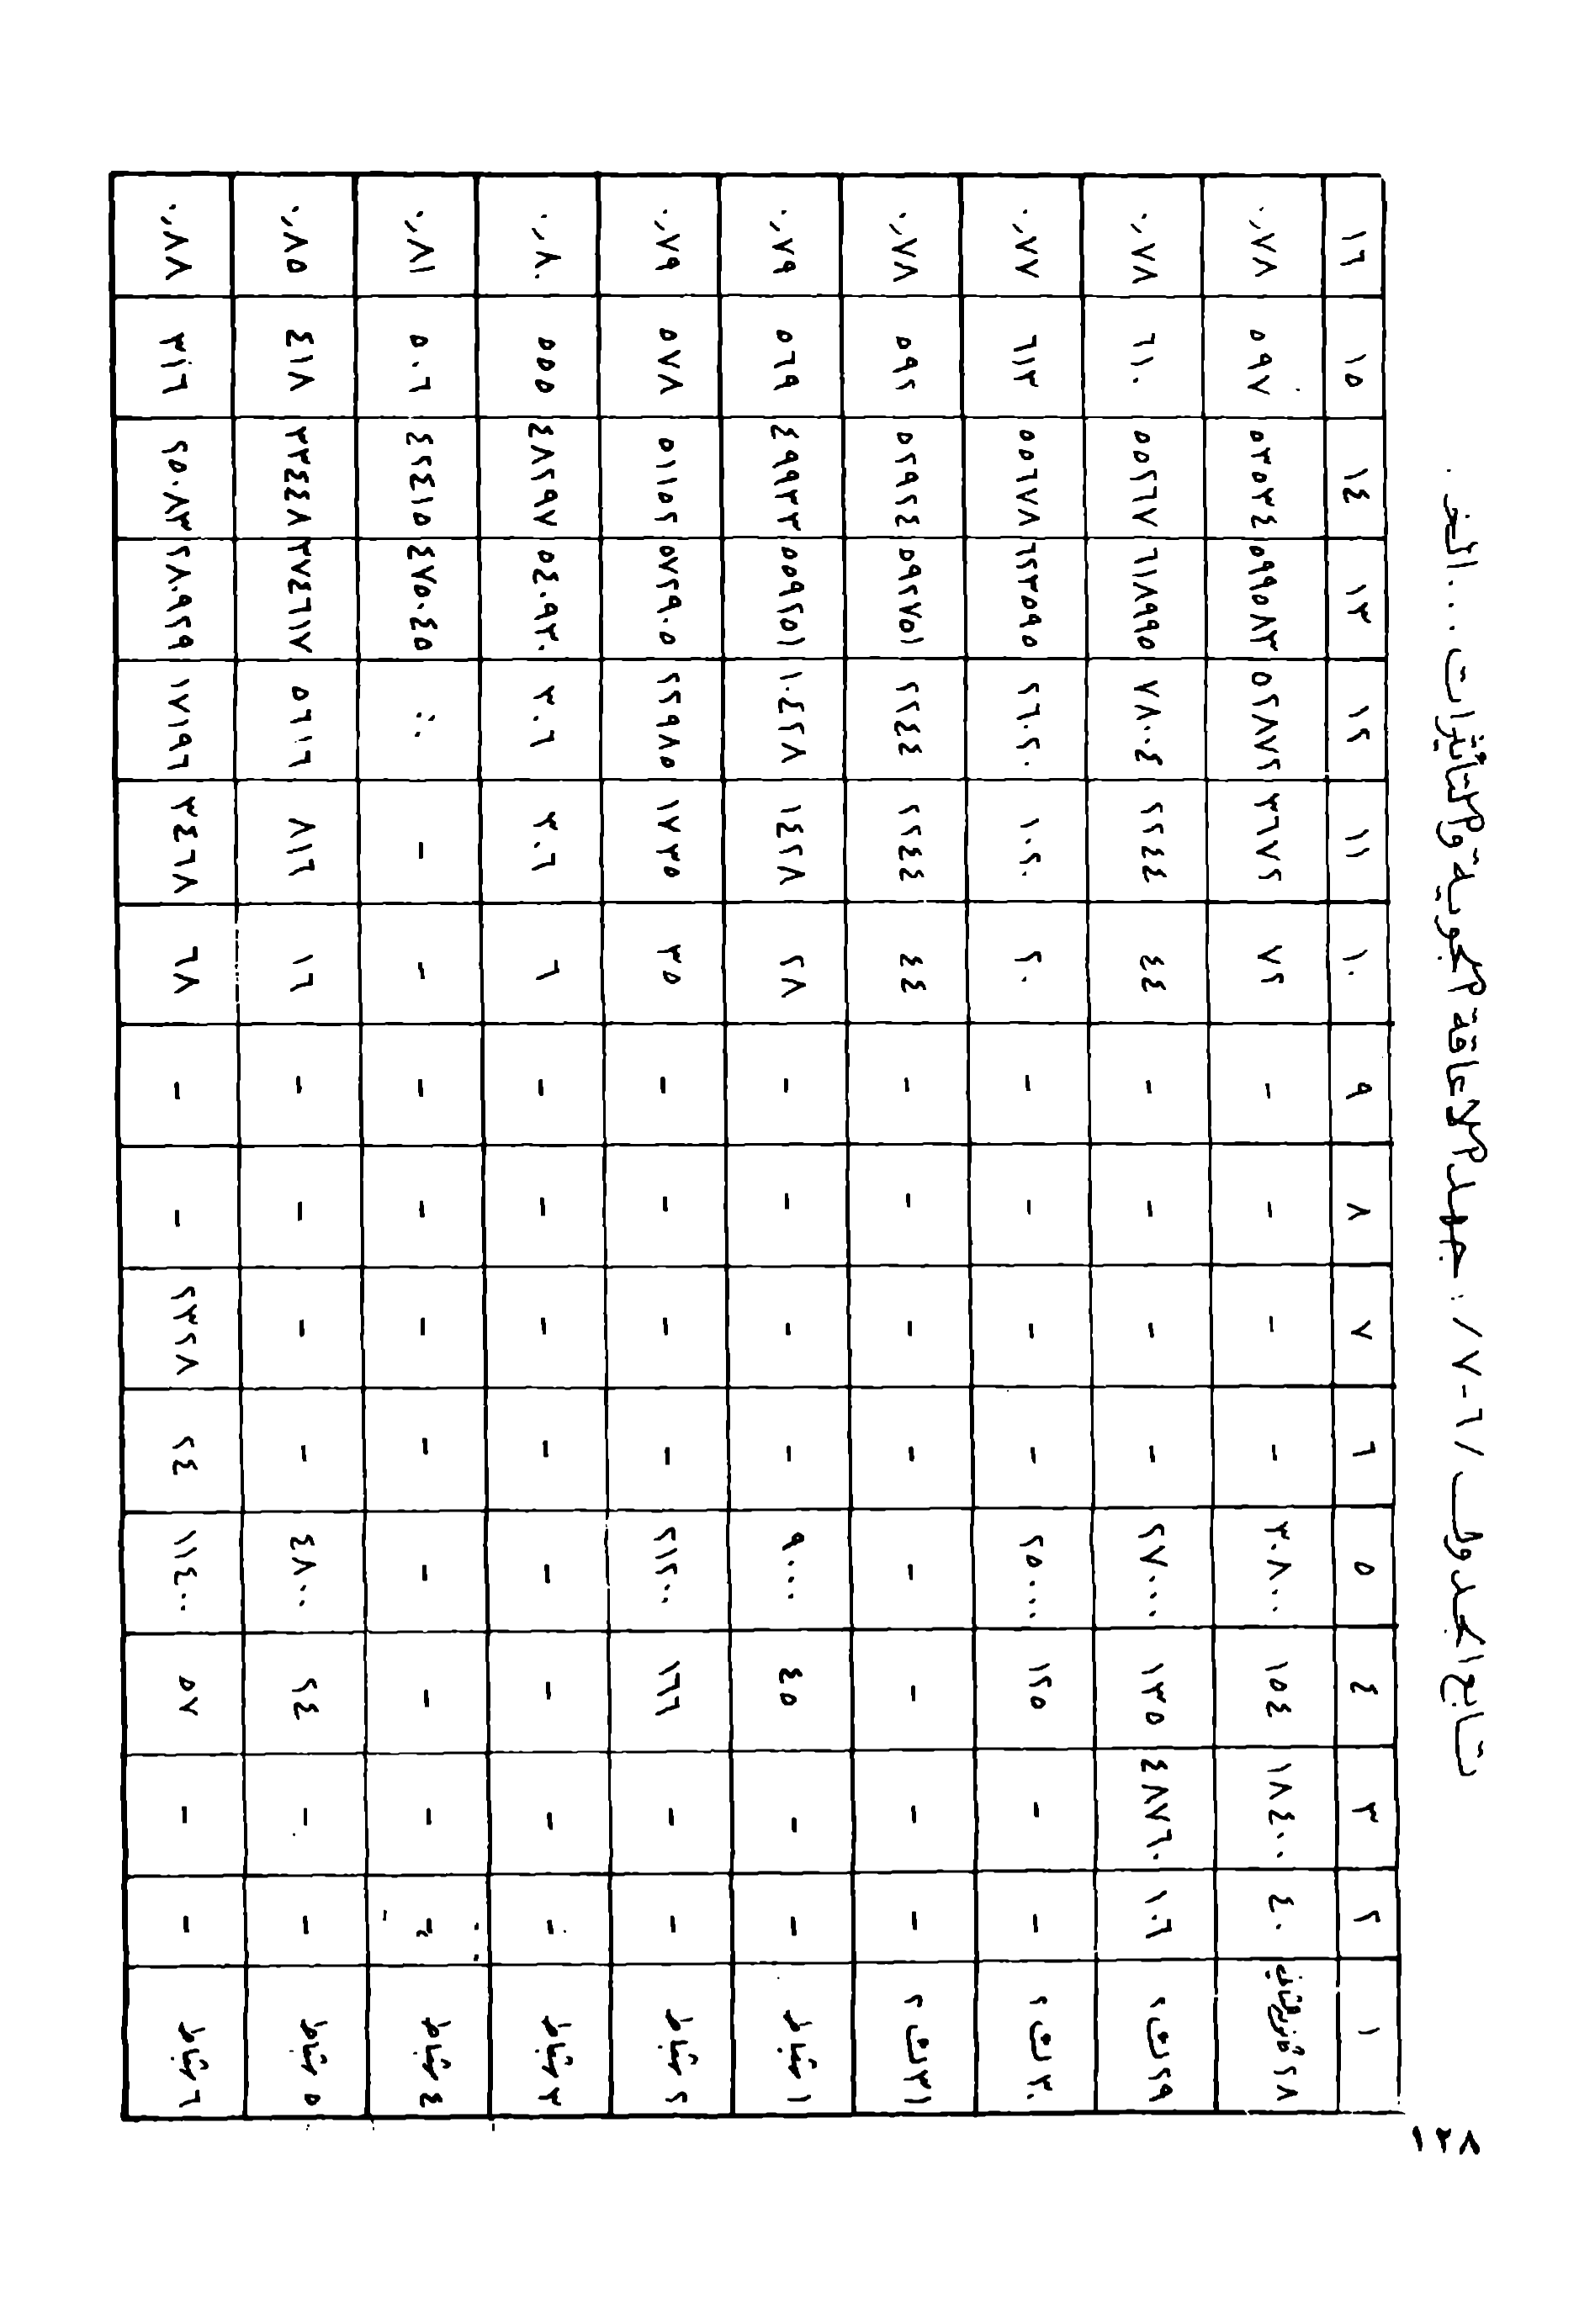 تابع الجدول /٦-٧/ : جهد الاعاقة الجوية والتأثيرات ...الخ .
١ ٢ ٣ ٤ ٥ ٦ ٧ ٨ ٩ ١٠ ١١ ١٢ ١٣ ١٤ ١٥ ١٦
٢٨ كانون الثاني ٤٠ ١٨٤٠٠ ١٥٤ ٣٠٨٠٠ - - - - ٧٢ ٣٦٧٢ ٥٢٨٧٢ ٥٩٩٥٨٣ ٥٣٥٣٤ ٥٩٧ ٠,٧٨
٢٩ ك ٢ ١٠٦ ٤٨٧٦٠ ١٣٥ ٢٧٠٠٠ - - - - ٤٤ ٢٢٤٤ ٧٨٠٠٤ ٦١٨٩٩٥ ٥٥٢٦٧ ٦١٠ ٠,٧٨
٣٠ ك ٢ - - ١٢٥ ٢٥٠٠٠ - - - - ٢٠ ١٠٢٠ ٢٦٠٢٠ ٦٢٣٥٩٥ ٥٥٦٧٨ ٦١٣ ٠,٧٧
٣١ ك ٢ - - - - - - - - ٤٤ ٢٢٤٤ ٢٢٤٤ ٥٩٢٧٥١ ٥٢٩٢٤ ٥٩٢ ٠,٧٨
١ شباط - - ٤٥ ٩٠٠٠ - - - - ٢٨ ١٤٢٨ ١٠٤٢٨ ٥٥٩٢٥١ ٤٩٩٣٣ ٥٦٩ ٠,٧٩
٢ شباط - - ١٦٦ ٢١٢٠٠ - - - - ٣٥ ١٧٣٥ ٢٢٩٨٥ ٥٧٢٩٠٥ ٥١١٥٢ ٥٧٨ ٠,٧٩
٣ شباط - - - - - - - - ٦ ٣٠٦ ٣٠٦ ٥٤٠٩٣٠ ٤٨٢٩٧ ٥٥٥ ٠,٨٠
٤ شباط - - - - - - - - - - ٤٧٥٠٤٥ ٤٢٤١٥ ٥٠٦ ٠,٨١
٥ شباط - - ٢٤ ٤٨٠٠ - - - - ١٦ ٨١٦ ٥٦١٦ ٣٧٤٦١٧ ٣٣٤٤٨ ٤١٨ ٠,٨٥
٦ شباط - - ٥٧ ١١٤٠٠ ٢٤ ٢٣٢٨ - - ٦٨ ٣٤٦٨ ١٧١٩٦ ٢٨٠٩٢٩ ٢٥٠٨٣ ٣١٦ ٠,٨٨
١٢٨